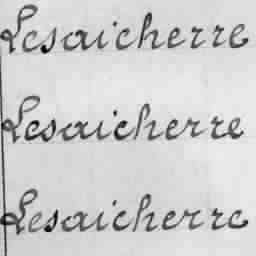 Lesaicherre
Lesaicherre
Lesaicherre